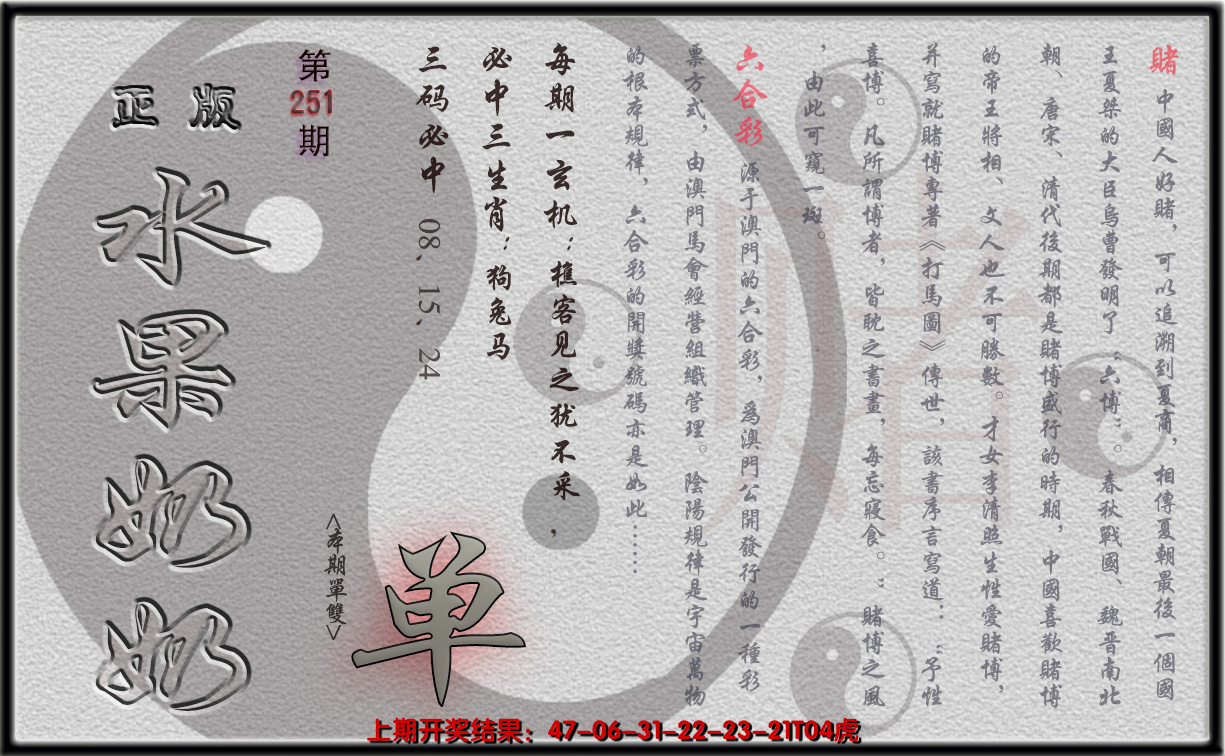 賭 中國人好賭，可以追溯到夏商，相傳夏朝最後一個國
王夏桀的大臣烏曹發明了“六博”。春秋戰國、魏晋南北
朝、唐宋、清代後期都是賭博盛行的時期，中國喜歡賭博
的帝王將相、文人也不可勝數。才女李清照生性愛賭博，
并寫就賭博專著《打馬圖》傳世，該書序言寫道：“予性
喜博。凡所謂博者，皆耽之晝夜，每忘寢食。”賭博之風
，由此可窺一斑。
六合彩 源于澳門的六合彩，爲澳門公開發行的一種彩
票方式，由澳門馬會經營組織管理。陰陽規律是宇宙萬物
的根本規律，六合彩的開獎號碼亦是如此……
每期一玄机：樵客见之犹不采，
必中三生肖：狗兔马
三码必中 08、15、24
第251期
正版
水果奶奶
<本期單雙>
单
賭
上期开奖结果：47-06-31-22-23-21T04虎